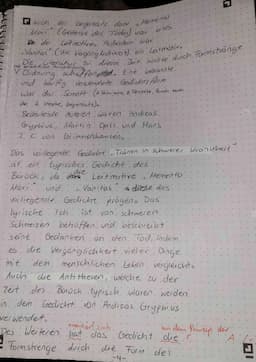 war begeisterte dazu „Memento
Mori" (Gedenke des Todes) war eines
der Leitmotive. Außerdem war
„Vanitas" (Vergänglichkeit) ein Leitmotiv.
Die Literatur zu dieser Zeit wollte durch Formstrenge
Ordnung schaffen. Eine bekannte
und häufig verwendete Gedichtform
war das Sonett
Bedeutende Autoren waren Andreas
Gryphius, Martin Opitz und Hans
J. C. von Grimmelshausen.
Das vorliegende Gedicht „Tränen in schwerer Krankheit"
ist ein typisches Gedicht des
Barock, da die Leitmotive „Memento
Mori" und „Vanitas" diese des
vorliegende Gedicht prägen. Das
lyrische Ich ist von schweren
Schmerzen betroffen und beschreibt
seine Gedanken an den Tod, indem
es die Vergänglichkeit vieler Dinge
mit dem menschlichen Leben vergleicht.
Auch die Antithesen, welche zu der
Zeit des Barock typisch waren werden
in dem Gedicht von Andreas Gryphius
verwendet.
Des Weiteren hat das Gedicht die
Formstrenge durch die Form des